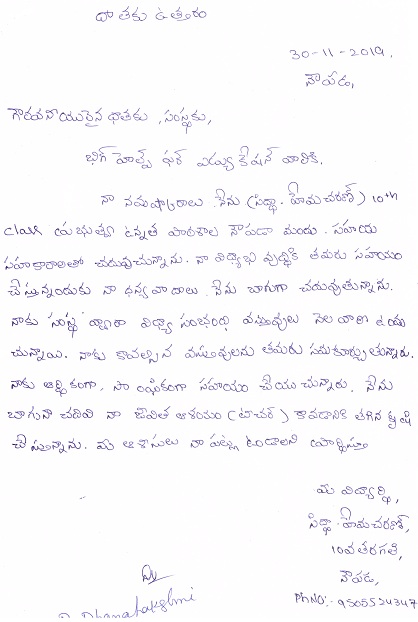 దాతకు ఉత్తరం
30-11-2019.
నౌపడ,
గౌరవనీయులైన దాతకు, సంస్థకు,
బిగ్ హెల్ప్ ఫర్ ఎడ్యుకేషన్ వారికి.
నా నమస్కారాలు. నేను (సిద్ధా. హేమచరణ్) 10th
class ప్రభుత్వ ఉన్నత పాఠశాల నౌపడా నందు. సహాయ
సహకారాలతో చదువుచున్నాను. నా విద్యాభి వృద్ధికి తమరు సహాయం
చేస్తున్నందుకు నా ధన్యవాదాలు. నేను బాగుగా చదువుతున్నాను.
నాకు సంస్థ ద్వారా విద్యా సంబంధి వస్తువులు నెల వారి
చున్నాయి. నాకు కావల్సిన వస్తువులను తమరు సమకూర్చుతున్నారు.
నాకు ఆర్థికంగా, సహాయం చేయుచున్నారు. నేను
బాగుగా చదివి నా జీవిత ఆశయం (టీచర్) కావడానికి తగిన కృషి
చేస్తున్నాను. మీ ఆశీసులు నా పట్ల ఉండాలని ప్రార్థిస్తూ
మీ విద్యార్థి,
సిద్ధా. హేమచరణ్,
10వ తరగతి,
నౌపడ,
PhNO:- 9505524347